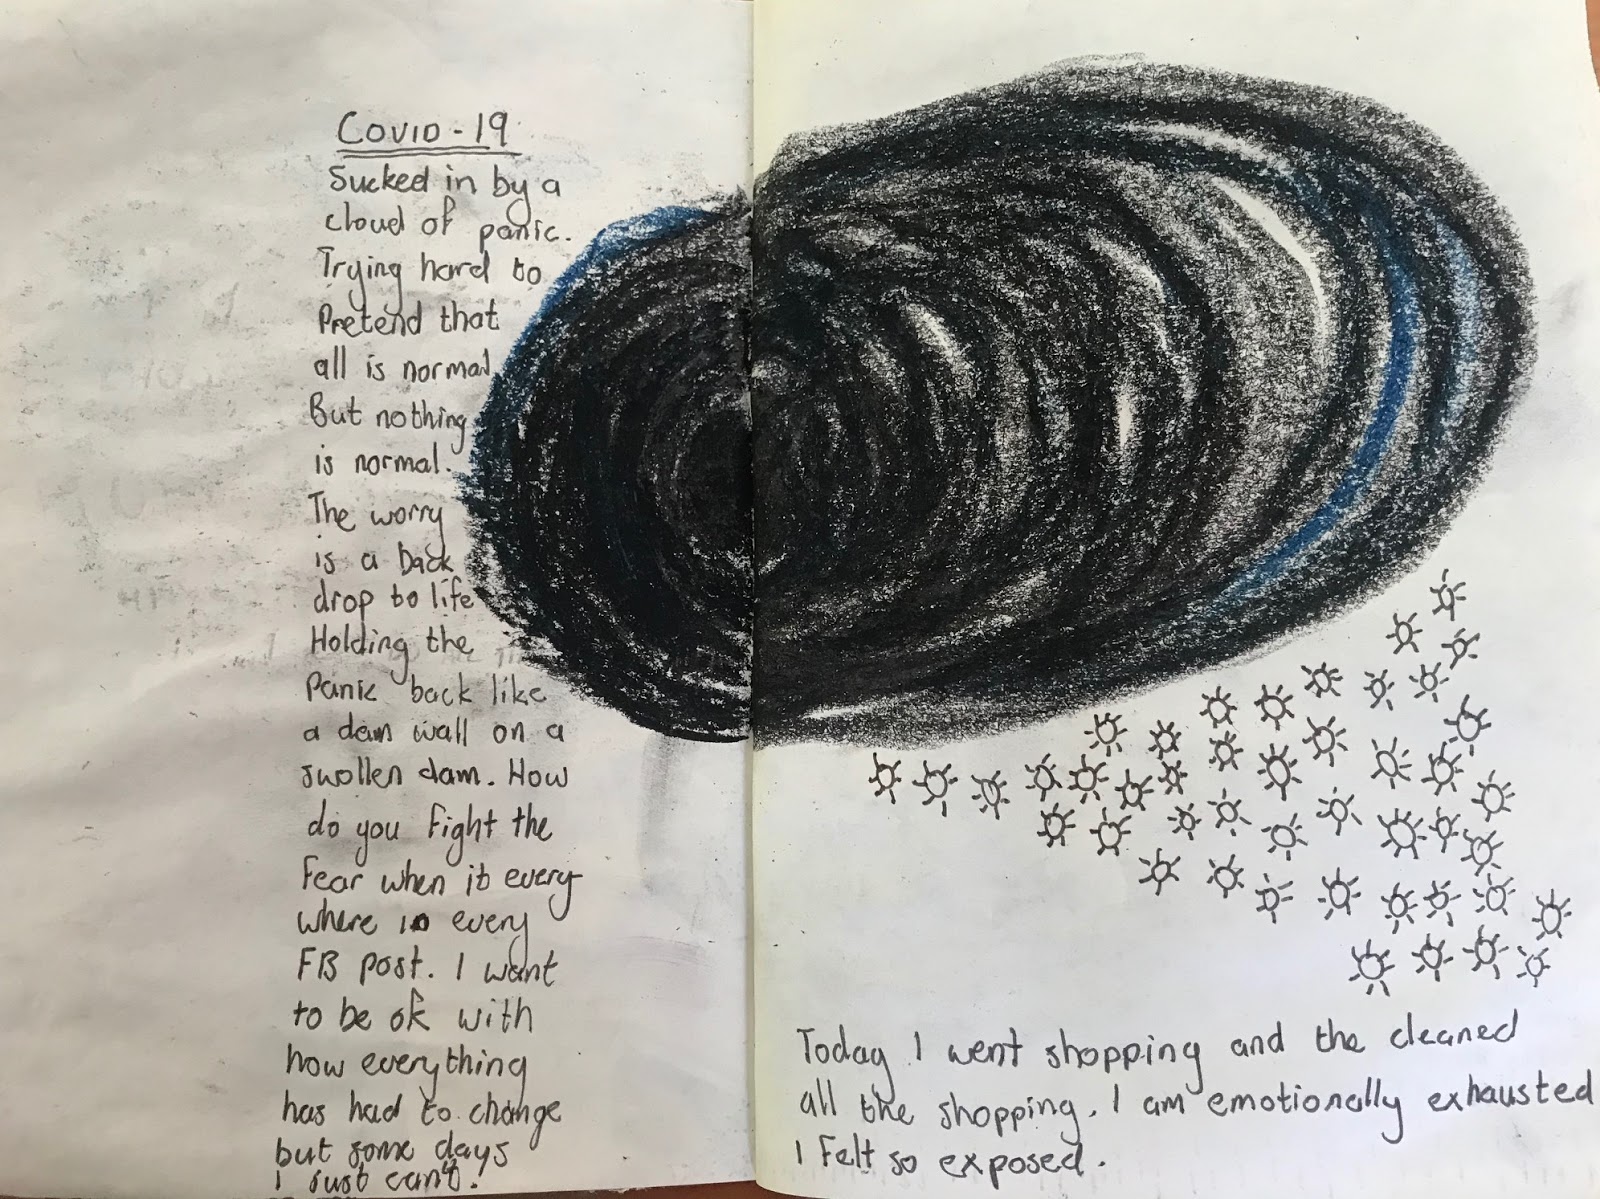 COVID-19
Sucked in by a
cloud of panic.
Trying hard to
Pretend that
all is normal
But nothing
is normal.
The worry
is a back
drop to life
Holding the
Panic back like
a dam wall on a
swollen dam. How
do you Fight the
Fear when it every
where in every
FB post. I want
to be ok with
how everything
has had to change
but some days
I just can't!
Today I went shopping and the cleaned
all the shopping. I am emotionally exhausted
I Felt so exposed.